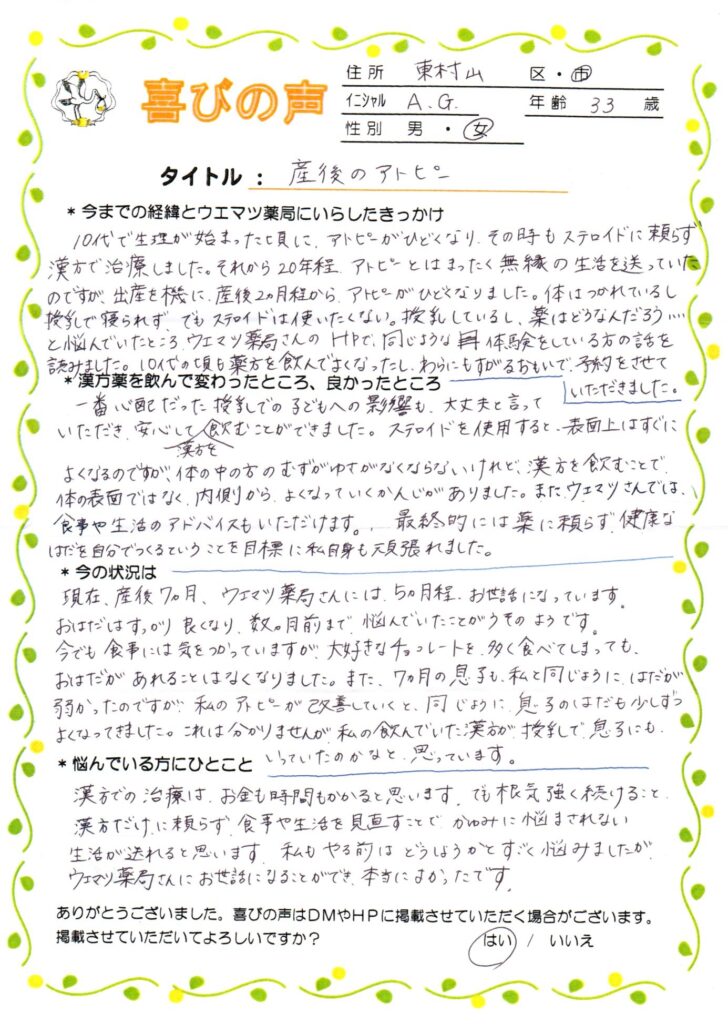 喜びの声
住所 東村山 区・市
イニシャル A.G. 年齢 33 歳
性別 男・女
タイトル： 産後のアトピー
＊今までの経緯とウエマツ薬局にいらしたきっかけ
10代で生理が始まった頃に、アトピーがひどくなり、その時もステロイドに頼らず
漢方で治療しました。それから20年程、アトピーとはまったく無縁の生活を送っていた
のですが、出産を機に、産後2カ月程から、アトピーがひどくなりました。体はつかれているし
授乳で寝られず、でもステロイドは使いたくない。授乳しているし、薬はどうなんだろう…
と悩んでいたところ、ウエマツ薬局さんのHPで、同じような体験をしている方の話を
読みました。10代の頃も薬方を飲んでよくなったし、わらにもすがるおもいで、予約をさせて
いただきました。
＊漢方薬を飲んで変わったところ、良かったところ
一番心配だった授乳での子どもへの影響も、大丈夫と言って
いただき、安心して漢方を飲むことができました。ステロイドを使用すると、表面上はすぐに
よくなるのですが、体の中の方のむずがゆさがなくならないけれど、漢方を飲むことで、
体の表面ではなく、内側から、よくなっていくかんじがありました。また、ウエマツさんでは、
食事や生活のアドバイスもいただけます。、最終的には薬に頼らず、健康な
はだを自分でつくるということを目標に私自身も頑張れました。
＊今の状況は
現在、産後7カ月、ウエマツ薬局さんには、5カ月程、お世話になっています。
おはだはすっかり良くなり、数カ月前まで、悩んでいたことがうそのようです。
今でも食事には気をつかっていますが、大好きなチョコレートを多く食べてしまっても、
おはだがあれることはなくなりました。また、7カ月の息子も、私と同じように、はだが
弱かったのですが、私のアトピーが改善していくと、同じように、息子のはだも少しずつ
よくなってきました。これは分かりませんが、私の飲んでいた漢方が、授乳で、息子にも、
いっていたのかなと、思っています。
＊悩んでいる方にひとこと
漢方での治療は、お金も時間もかかると思います。でも根気強く続けること、
漢方だけに頼らず、食事や生活を見直すことで、かゆみに悩まされない
生活が送れると思います。私もやる前はどうしようかとすごく悩みましたが、
ウエマツ薬局さんにお世話になることができ、本当によかったです。
ありがとうございました。喜びの声はDMやHPに掲載させていただく場合がございます。
掲載させていただいてよろしいですか？ はい / いいえ